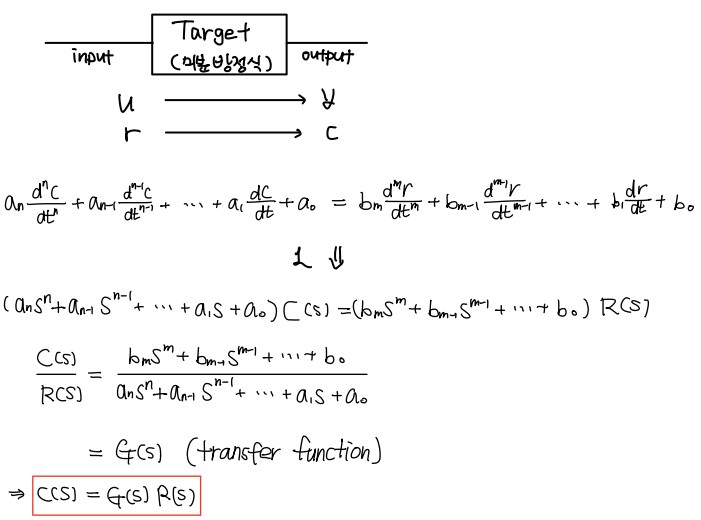 Target
input (미분방정식) output
u → y
r → c
aₙ dⁿc/dtⁿ + aₙ₋₁ dⁿ⁻¹c/dtⁿ⁻¹ + ⋯ + a₁ dc/dt + a₀ = bₘ dᵐr/dtᵐ + bₘ₋₁ dᵐ⁻¹r/dtᵐ⁻¹ + ⋯ + b₁ dr/dt + b₀
ℒ ⇓
(aₙsⁿ + aₙ₋₁sⁿ⁻¹ + ⋯ + a₁s + a₀) C(s) = (bₘsᵐ + bₘ₋₁sᵐ⁻¹ + ⋯ + b₀) R(s)
C(s)/R(s) = (bₘsᵐ + bₘ₋₁sᵐ⁻¹ + ⋯ + b₀)/(aₙsⁿ + aₙ₋₁sⁿ⁻¹ + ⋯ + a₁s + a₀)
= G(s) (transfer function)
⇒ C(s) = G(s) R(s)